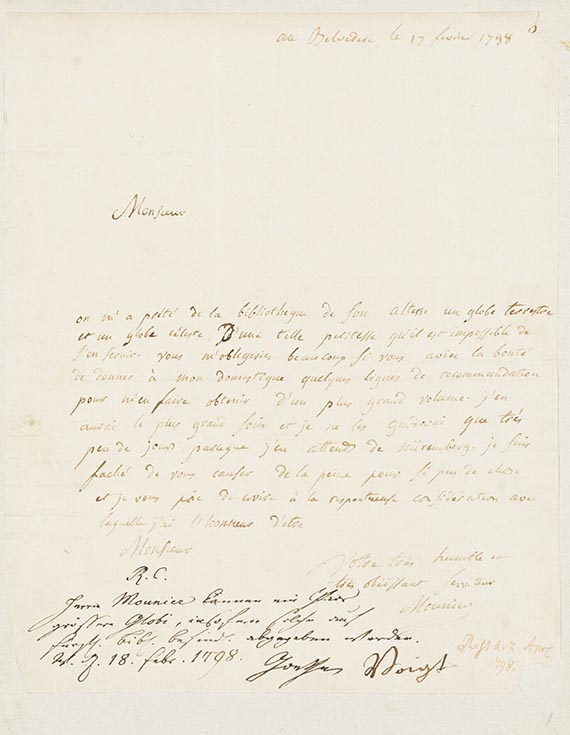 au Belvedere le 17 fevrier 1798
Monsieur
on m'a prêté de la bibliotheque de Son altesse un globe terrestre
et un globe céleste, D'une telle petitesse qu'il est impossible de
s'en servir. vous m'obligeriez beaucoup si vous aviez la bonté
de donner à mon domestique quelques lignes de recommandation
pour m'en faire obtenir d'un plus grand volume. j'en
aurai le plus grand soin et je ne les garderai que très
peu de jours, parceque j'en attends de Nüremberg. je suis
faché de vous causer de la peine pour si peu de chose
et je vous prie de croire à la respectueuse considération avec
laquelle j'ai l'honneur d'etre
Monsieur
Votre très humble et
très obeissant serviteur
Mounier
R. C.
Herrn Mounier können ein Paar
grössere Globi, insofern solche auf
fürstl. bibl. befindl. abgegeben werden.
W. d. 18. Febr. 1798.
Goethe Voigt
1798.